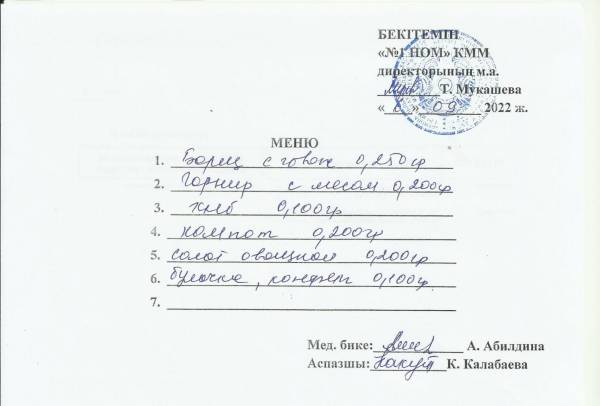 БЕКІТЕМІН
«№1 НОМ» КММ
директорының м.а.
Т. Мукашева
« 6 » 09 2022 ж.
МЕНЮ
1. Борщ с говяж 0,250гр
2. Горнир с месам 0,200гр
3. хлеб 0,100гр
4. компот 0,200гр
5. солат овощной 0,200гр
6. булочка, конфет 0,100гр
7.
Мед. бике: А. Абилдина
Аспазшы: К. Калабаева